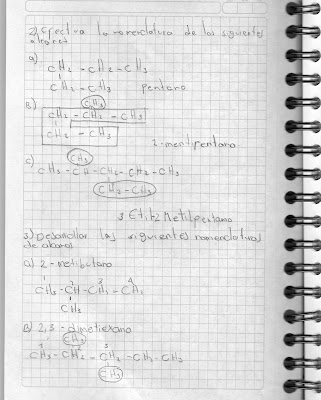 2) Efectua la nomenclatura de los siguientes
alcanos
a)
CH2 - CH2 - CH3
CH2 - CH3 pentano
B)
CH3
CH2 - CH2 - CH3
CH2 - CH3
2-mentilpentano
C)
CH3
CH3 - CH - CH2 - CH2 - CH3
CH2 - CH3
3 Etil-2 Metilpentano
3) Desarrollar las siguientes nomenclaturas
de alcanos
a) 2 - metilbutano
1 2 3 4
CH3 - CH - CH2 - CH3
CH3
B) 2,3 - dimetil
CH3
CH3 - CH2 - CH2 - CH2 - CH3
CH3